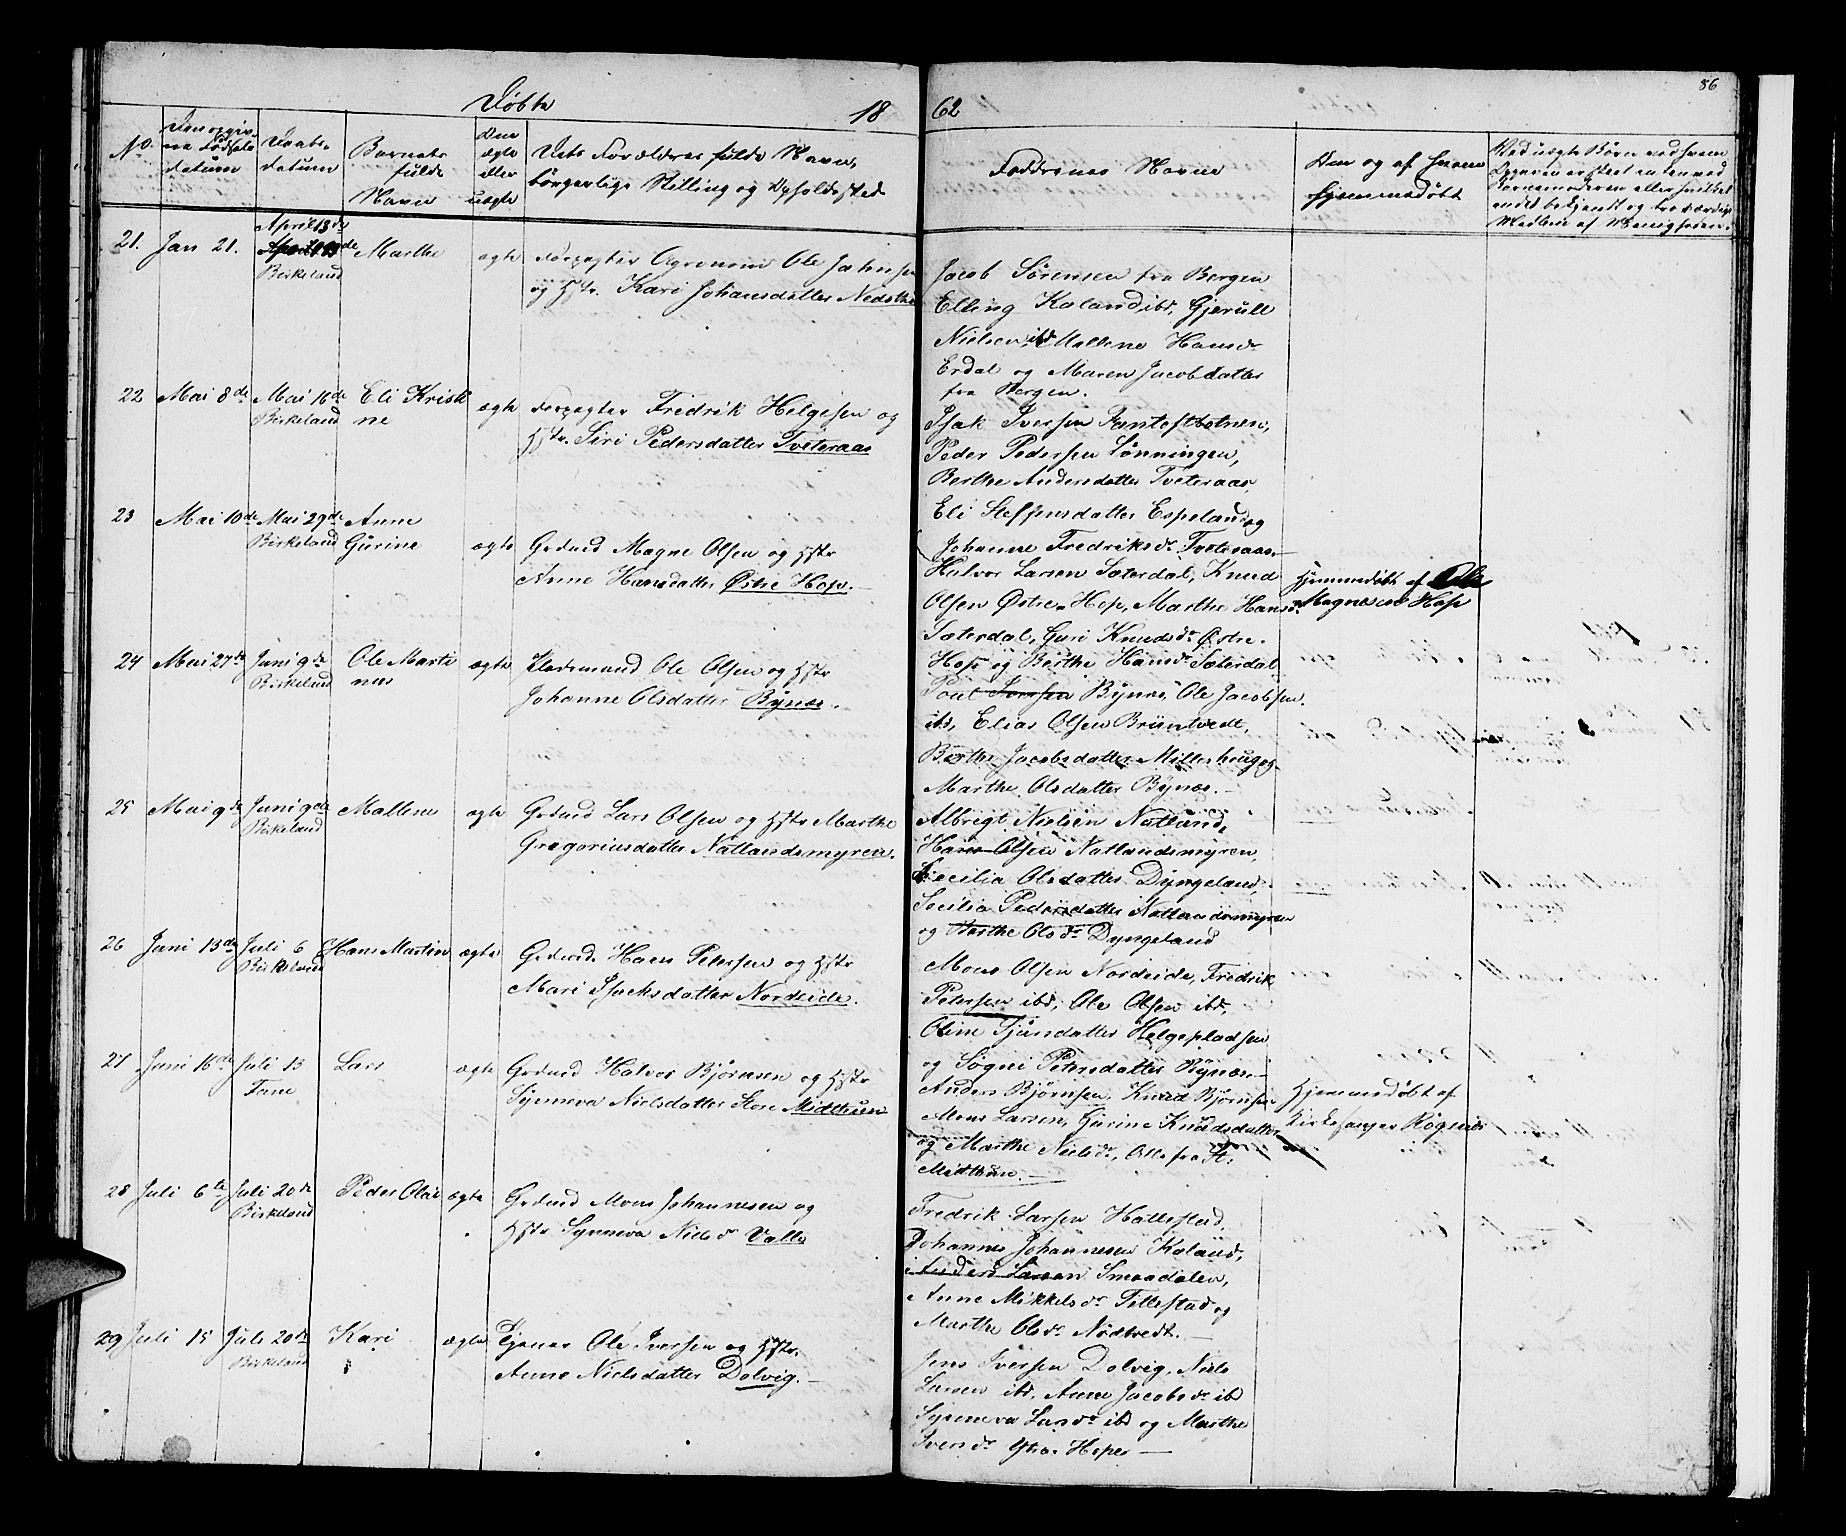 86
Døbte 1862
No.
Den opgiv-
ne Fødsels
datum
Daabs-
datum
Barnets
fulde
Navn
Om
ægte
eller
uægte
Dets Forældres fulde Navne,
borgerlige Stilling og Opholdssted
Faddernes Navne
Om og af hvem
hjemmedøbt
21. Jan 21. April 13de Birkeland Marthe ægte Forpagter Agronom Ole Jahnsen
og Hstr. Kari Johansdatter Nedsthe
Jacob Sørensen fra Bergen
Elling Kaland ibd, Gjerull
Nielsen ibd Mallene Hansdr
Erdal og Maren Jacobdatter
fra Bergen.
22 Mai 8de Mai 16de Birkeland Eli Kristi
ne ægte Forpagter Fredrik Helgesen og
Hstr. Siri Pedersdatter Tveteraas
Isak Iversen Fantoftbotnen,
Peder Pedersen Lønningen,
Berthe Andersdatter Tveteraas,
Eli Steffensdatter Espeland og
Johanne Fredriksdr Tveteraas.
23 Mai 10de Mai 29de Birkeland Anne
Gurine ægte Grdmd Magne Olsen og Hstr
Anne Hansdatter Østre Hop.
Halvor Larsen Sæterdal, Knud
Olsen Østre-Hop, Marthe Hansdr
Sæterdal, Guri Knudsdr Østre-
Hop og Berthe Hansdr Sæterdal
Hjemmedøbt af Ole
Magnesen Hop
24 Mai 27de Juni 9de Birkeland Ole Marti
nus ægte Pladsmand Ole Olsen og Hstr
Johanne Olsdatter Bynæs.
Poul Bynæs, Ole Jacobsen
ibd, Elias Olsen Bruntvedt,
Berthe Jacobsdatter Milleshaug og
Marthe Olsdatter Bynæs.
25 Mai 9de Juni 9de Birkeland Mallene ægte Grdmd Lars Olsen og Hstr Marthe
Gregoriusdatter Natlandsmyren.
Albregt Nielsen Natland,
Hans Olsen Natlandsmyren,
Cecilia Olsdatter Dyngeland,
Secilia Pedersdatter Natlandsmyren
og Marthe Olsdr Dyngeland
26 Juni 13de Juli 6 Birkeland Hans Martin ægte Grdmd. Hans Petersen og Hstr
Mari Isachsdatter Nordeide.
Mons Olsen Nordeide, Fredrik
Petersen ibd, Ole Olsen ibd,
Oline Tjøsdatter Helgepladsen
og Søgni Petersdatter Bynæs.
27 Juni 16de Juli 13 Fane Lars ægte Grdmd Halvor Bjørnsen og Hstr
Synneva Nielsdatter Store Midthuun
Anders Bjørnsen, Knud Bjørnsen
Mons Larsen, Gurine Knudsdatter
og Marthe Nielsdr, Alle fra St.
Midthun.
Hjemmedøbt af
Kirkesanger Røgnes
28 Juli 6te Juli 20de Birkeland Peder Olai ægte Grdmd Mons Johannesen og
Hstr Synneva Nielsdr Valle
Fredrik Larsen Hattestad,
Johannes Johannesen Kaland,
Anders Larsen Smaadalen,
Anne Mikkelsdr Tittestad og
Marthe Olsdr Nødtvedt.
29 Juli 15 Juli 20de Birkeland Kari ægte Tjener Ole Iversen og Hstr.
Anne Nielsdatter Dolvig.
Jens Iversen Dolvig, Niels
Larsen ibd, Anne Jacobsdr ibd
Synneva Larsdr ibd og Marthe
Iversdr Ytre-Hope